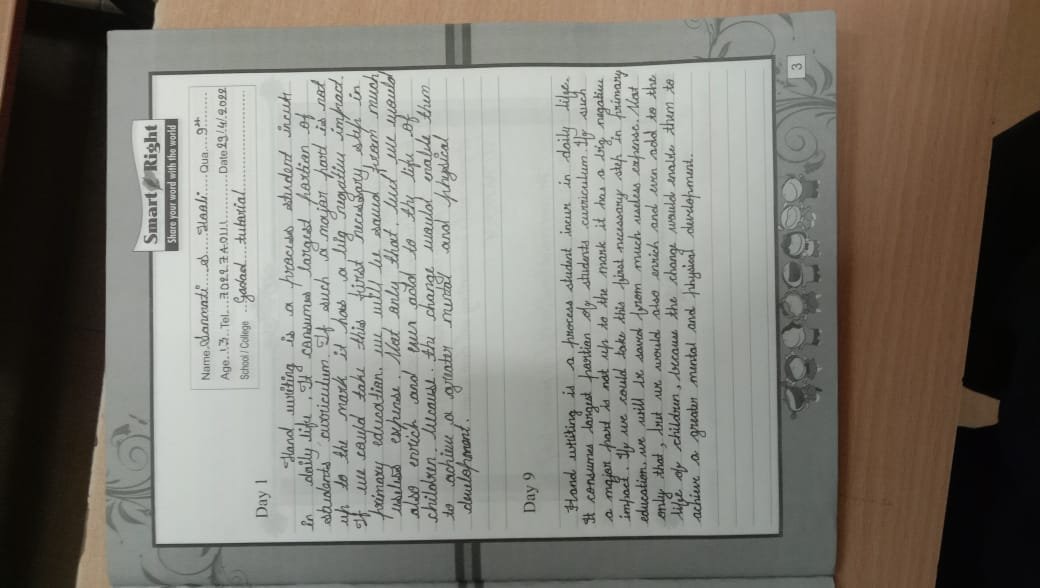 Smart Right
Share your word with the world
Name. Sanmati.....S.....Hooli.....Qua....9th.....
Age...13..Tel...7022..........Date 29/4/2022
School / College ..Gadad...tutorial..............
Day 1
Hand writing is a process student incur
in daily life. It consumes largest portion of
students curriculum. If such a major part is not
up to the mark it has a big negative impact.
If we could take this first necessary step in
primary education. we will be saved from much
useless expense. Not only that, but we would
also enrich and even add to the life of
children. because. the change would enable them
to achieve a greater mental and physical
development.
Day 9
Hand writing is a process student incur in daily life.
It consumes largest portion of students curriculum. If such
a major part is not up to the mark it has a big negative
impact. If we could take this first necessary step in primary
education. we will be saved from much useless expense. Not
only that, but we would also enrich and even add to the
life of children, because the change would enable them to
achieve a greater mental and physical development.
3